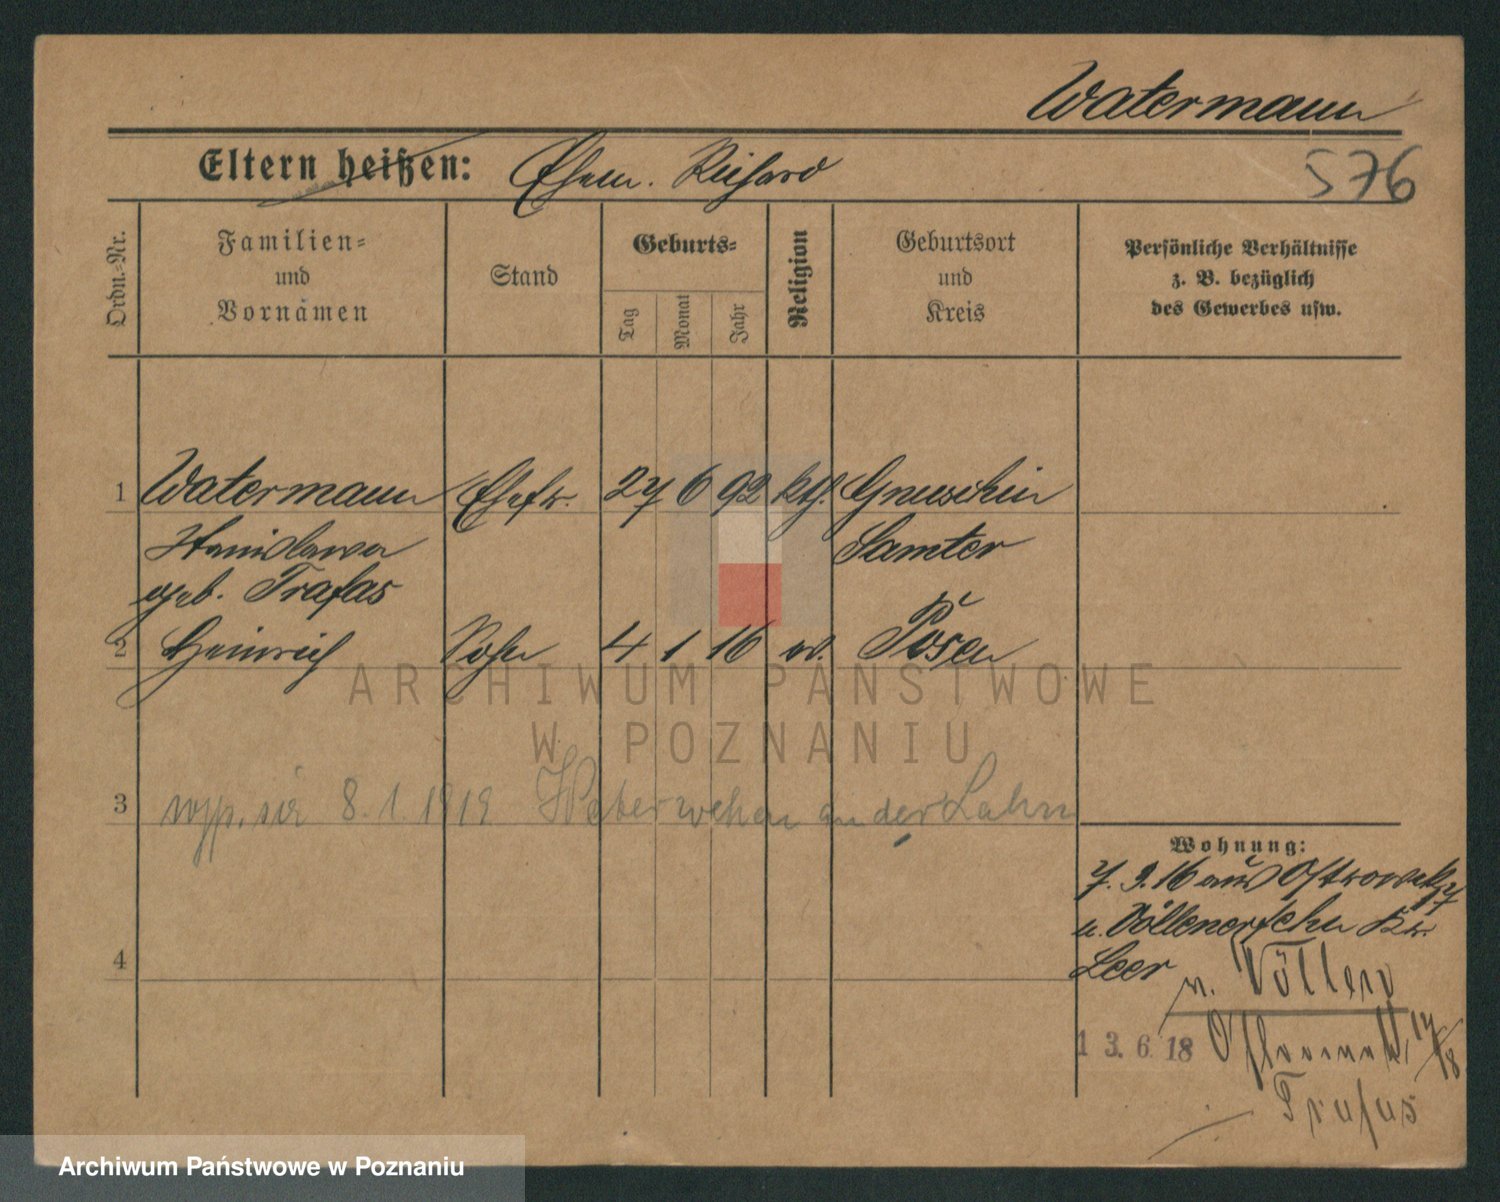 Watermann
Eltern heißen: Ehem. Richard
576
Ordn.-Nr.
Familien- und Vornamen
Stand
Geburts-
Tag
Monat
Jahr
Religion
Geburtsort und Kreis
Persönliche Verhältnisse
z. B. bezüglich
des Gewerbes usw.
1 Watermann Ehefr. 27 6 92 kth. Gnuschin
Stanislawa Samter
geb. Trafas
2 Heinrich Sohn 4 1 16 ev. Posen
3 wyp. się 8.1.1919 an der Lahn
Wohnung:
7. 9. 16 aus
u. Kr.
Leer
n. Völlen
4
13. 6. 18
Trafas
ARCHIWUM PAŃSTWOWE
W POZNANIU
Archiwum Państwowe w Poznaniu